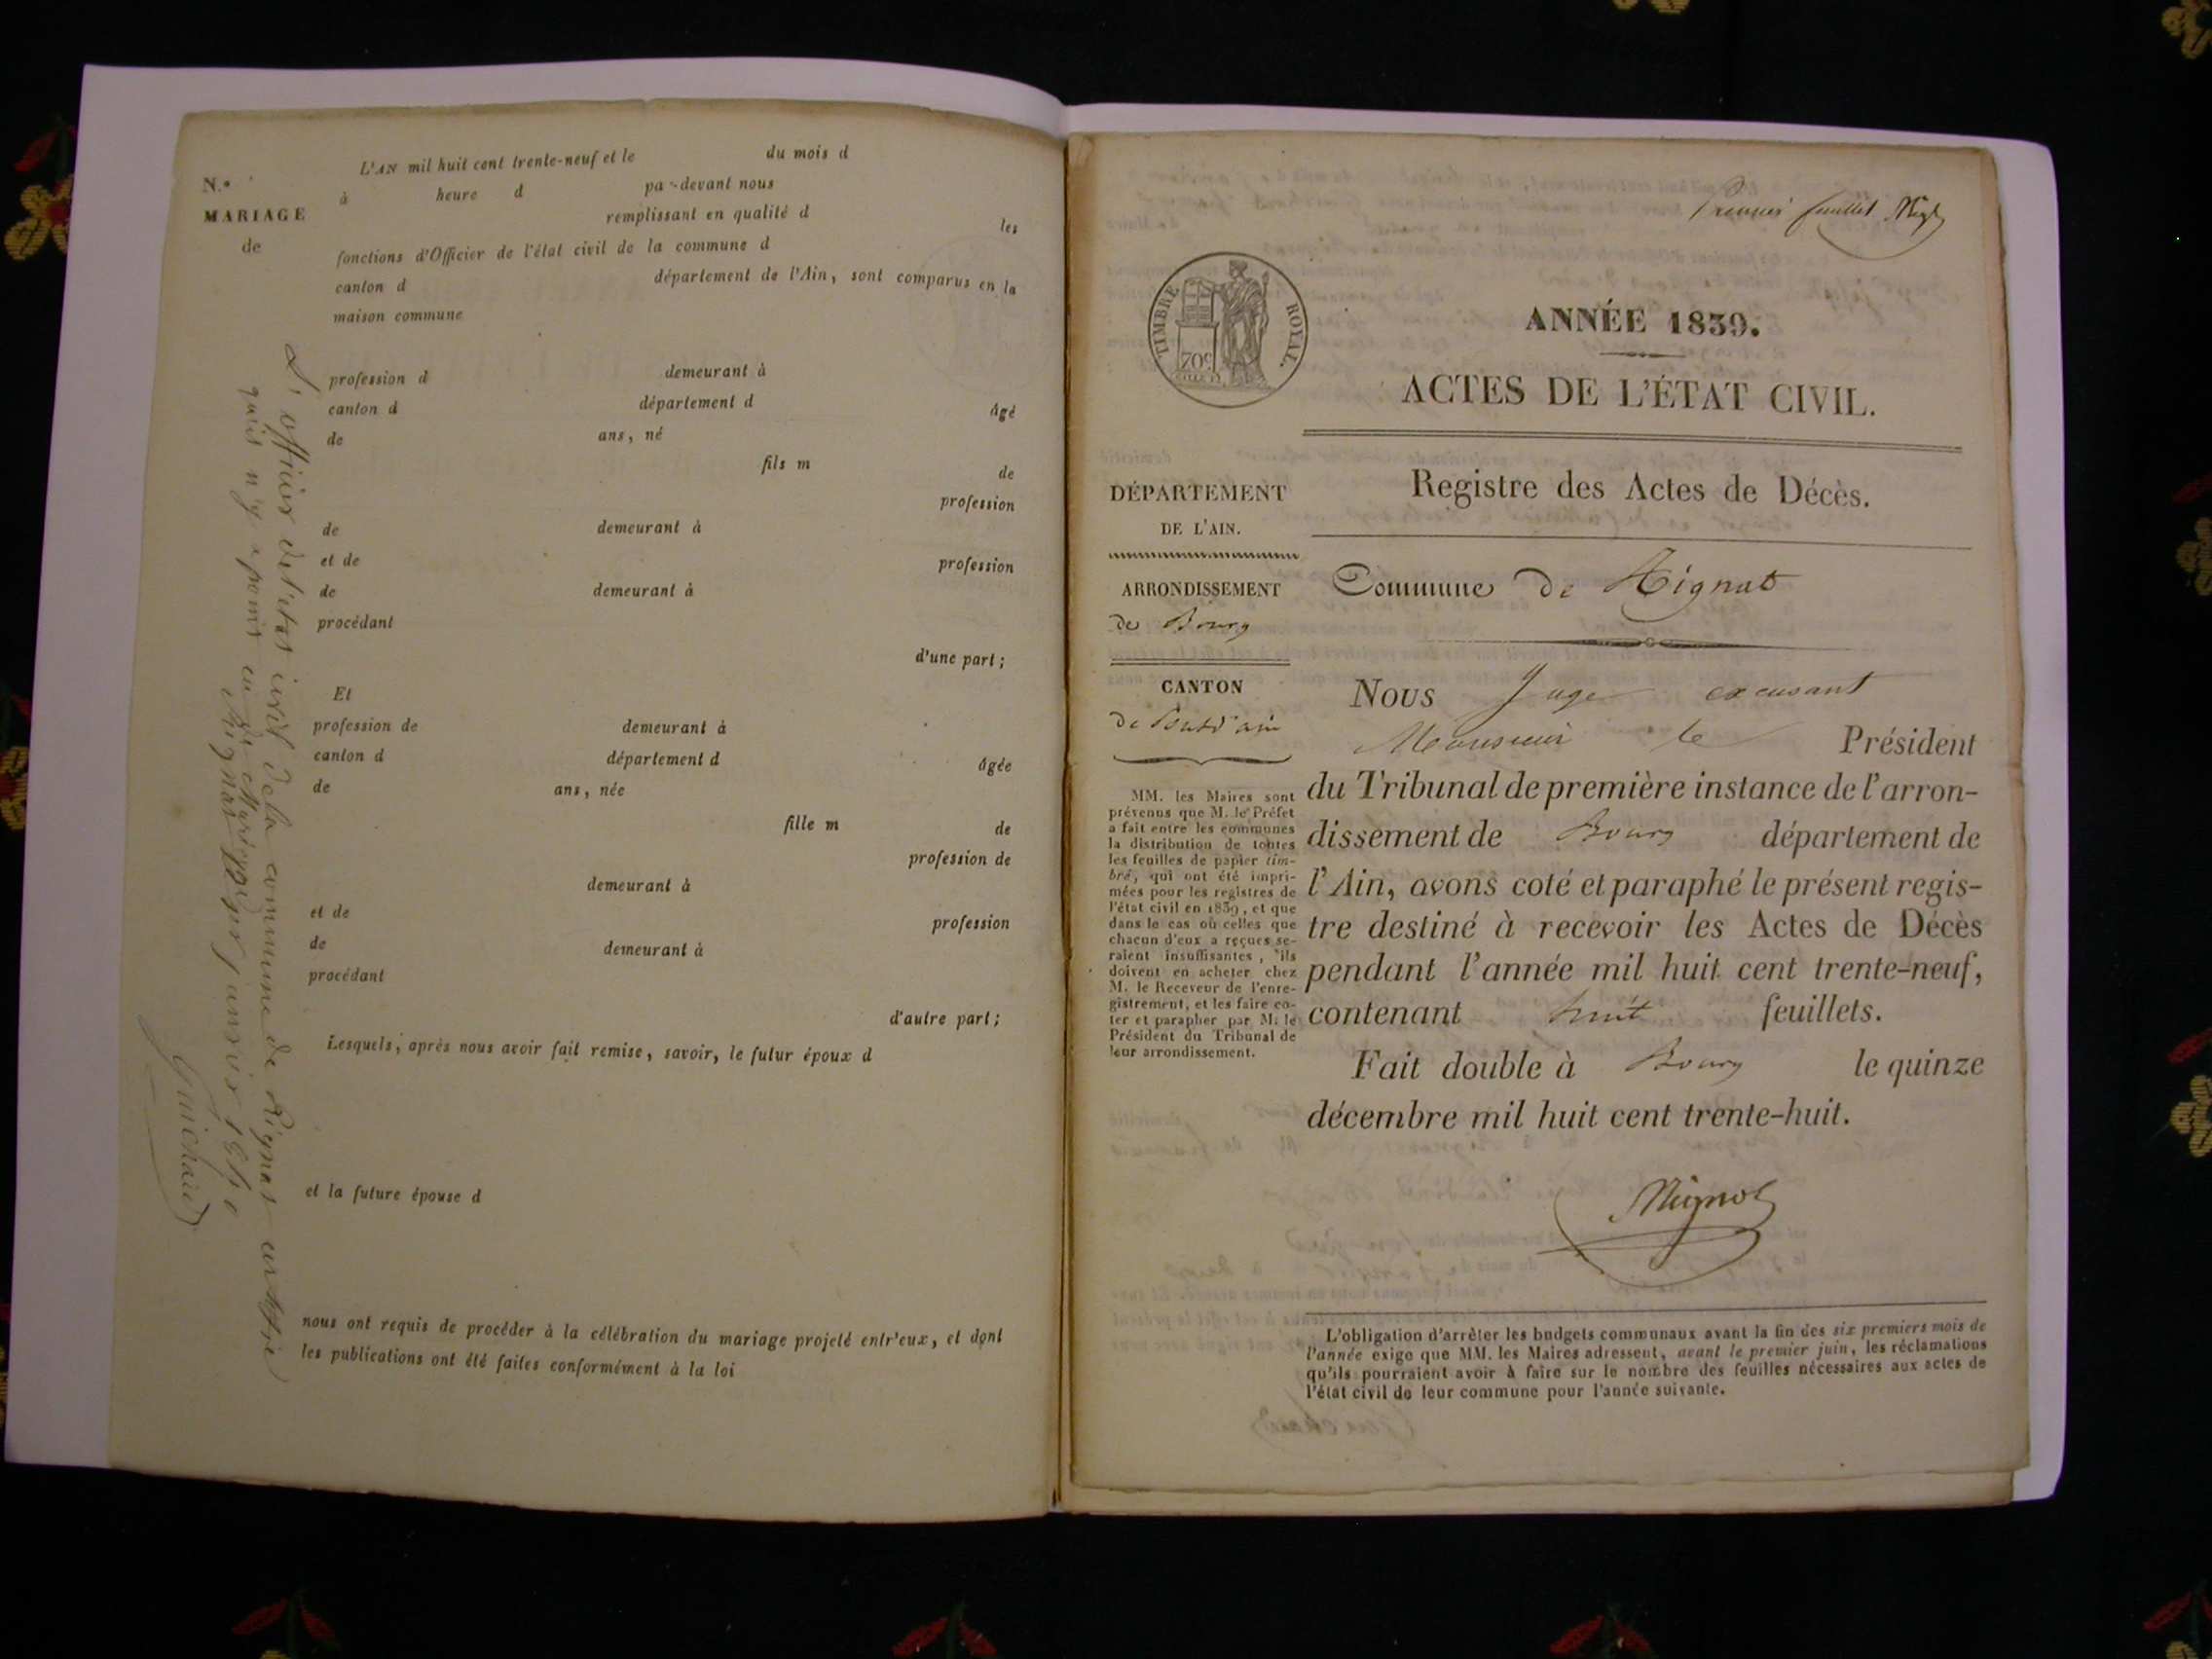 L'AN mil huit cent trente-neuf et le du mois d
N.o à heure d pa-devant nous
MARIAGE remplissant en qualité d les
de fonctions d'Officier de l'état civil de la commune d
canton d département de l'Ain, sont comparus en la
maison commune
profession d demeurant à
canton d département d âgé
de ans, né
fils m de
profession
de demeurant à
et de profession
de demeurant à
procédant
d'une part;
Et
profession de demeurant à
canton d département d âgée
de ans, née
fille m de
profession de
demeurant à
et de profession
de demeurant à
procédant
d'autre part;
Lesquels, après nous avoir fait remise, savoir, le futur époux d
et la future épouse d
nous ont requis de procéder à la célébration du mariage projeté entr'eux, et dont
les publications ont été faites conformément à la loi
L'officier de l'état civil de la commune de Rignat certifie
qu'il n'y a point eu de Mariages
Rignat janvier 1840
Guichard
Premier feuillet
TIMBRE ROYAL
70c
ANNÉE 1839.
ACTES DE L'ÉTAT CIVIL.
DÉPARTEMENT
DE L'AIN.
ARRONDISSEMENT
de Bourg
CANTON
de
MM. les Maires sont
prévenus que M. le Préfet
a fait entre les communes
la distribution de toutes
les feuilles de papier tim-
bré, qui ont été impri-
mées pour les registres de
l'état civil en 1839, et que
dans le cas où celles que
chacun d'eux a reçues se-
raient insuffisantes, ils
doivent en acheter chez
M. le Receveur de l'enre-
gistrement, et les faire co-
ter et parapher par M. le
Président du Tribunal de
leur arrondissement.
Registre des Actes de Décès.
Commune de Rignat
Nous Juge excusant
Monsieur le Président
du Tribunal de première instance de l'arron-
dissement de Bourg département de
l'Ain, avons coté et paraphé le présent regis-
tre destiné à recevoir les Actes de Décès
pendant l'année mil huit cent trente-neuf,
contenant huit feuillets.
Fait double à Bourg le quinze
décembre mil huit cent trente-huit.
L'obligation d'arrêter les budgets communaux avant la fin des six premiers mois de
l'année exige que MM. les Maires adressent, avant le premier juin, les réclamations
qu'ils pourraient avoir à faire sur le nombre des feuilles nécessaires aux actes de
l'état civil de leur commune pour l'année suivante.